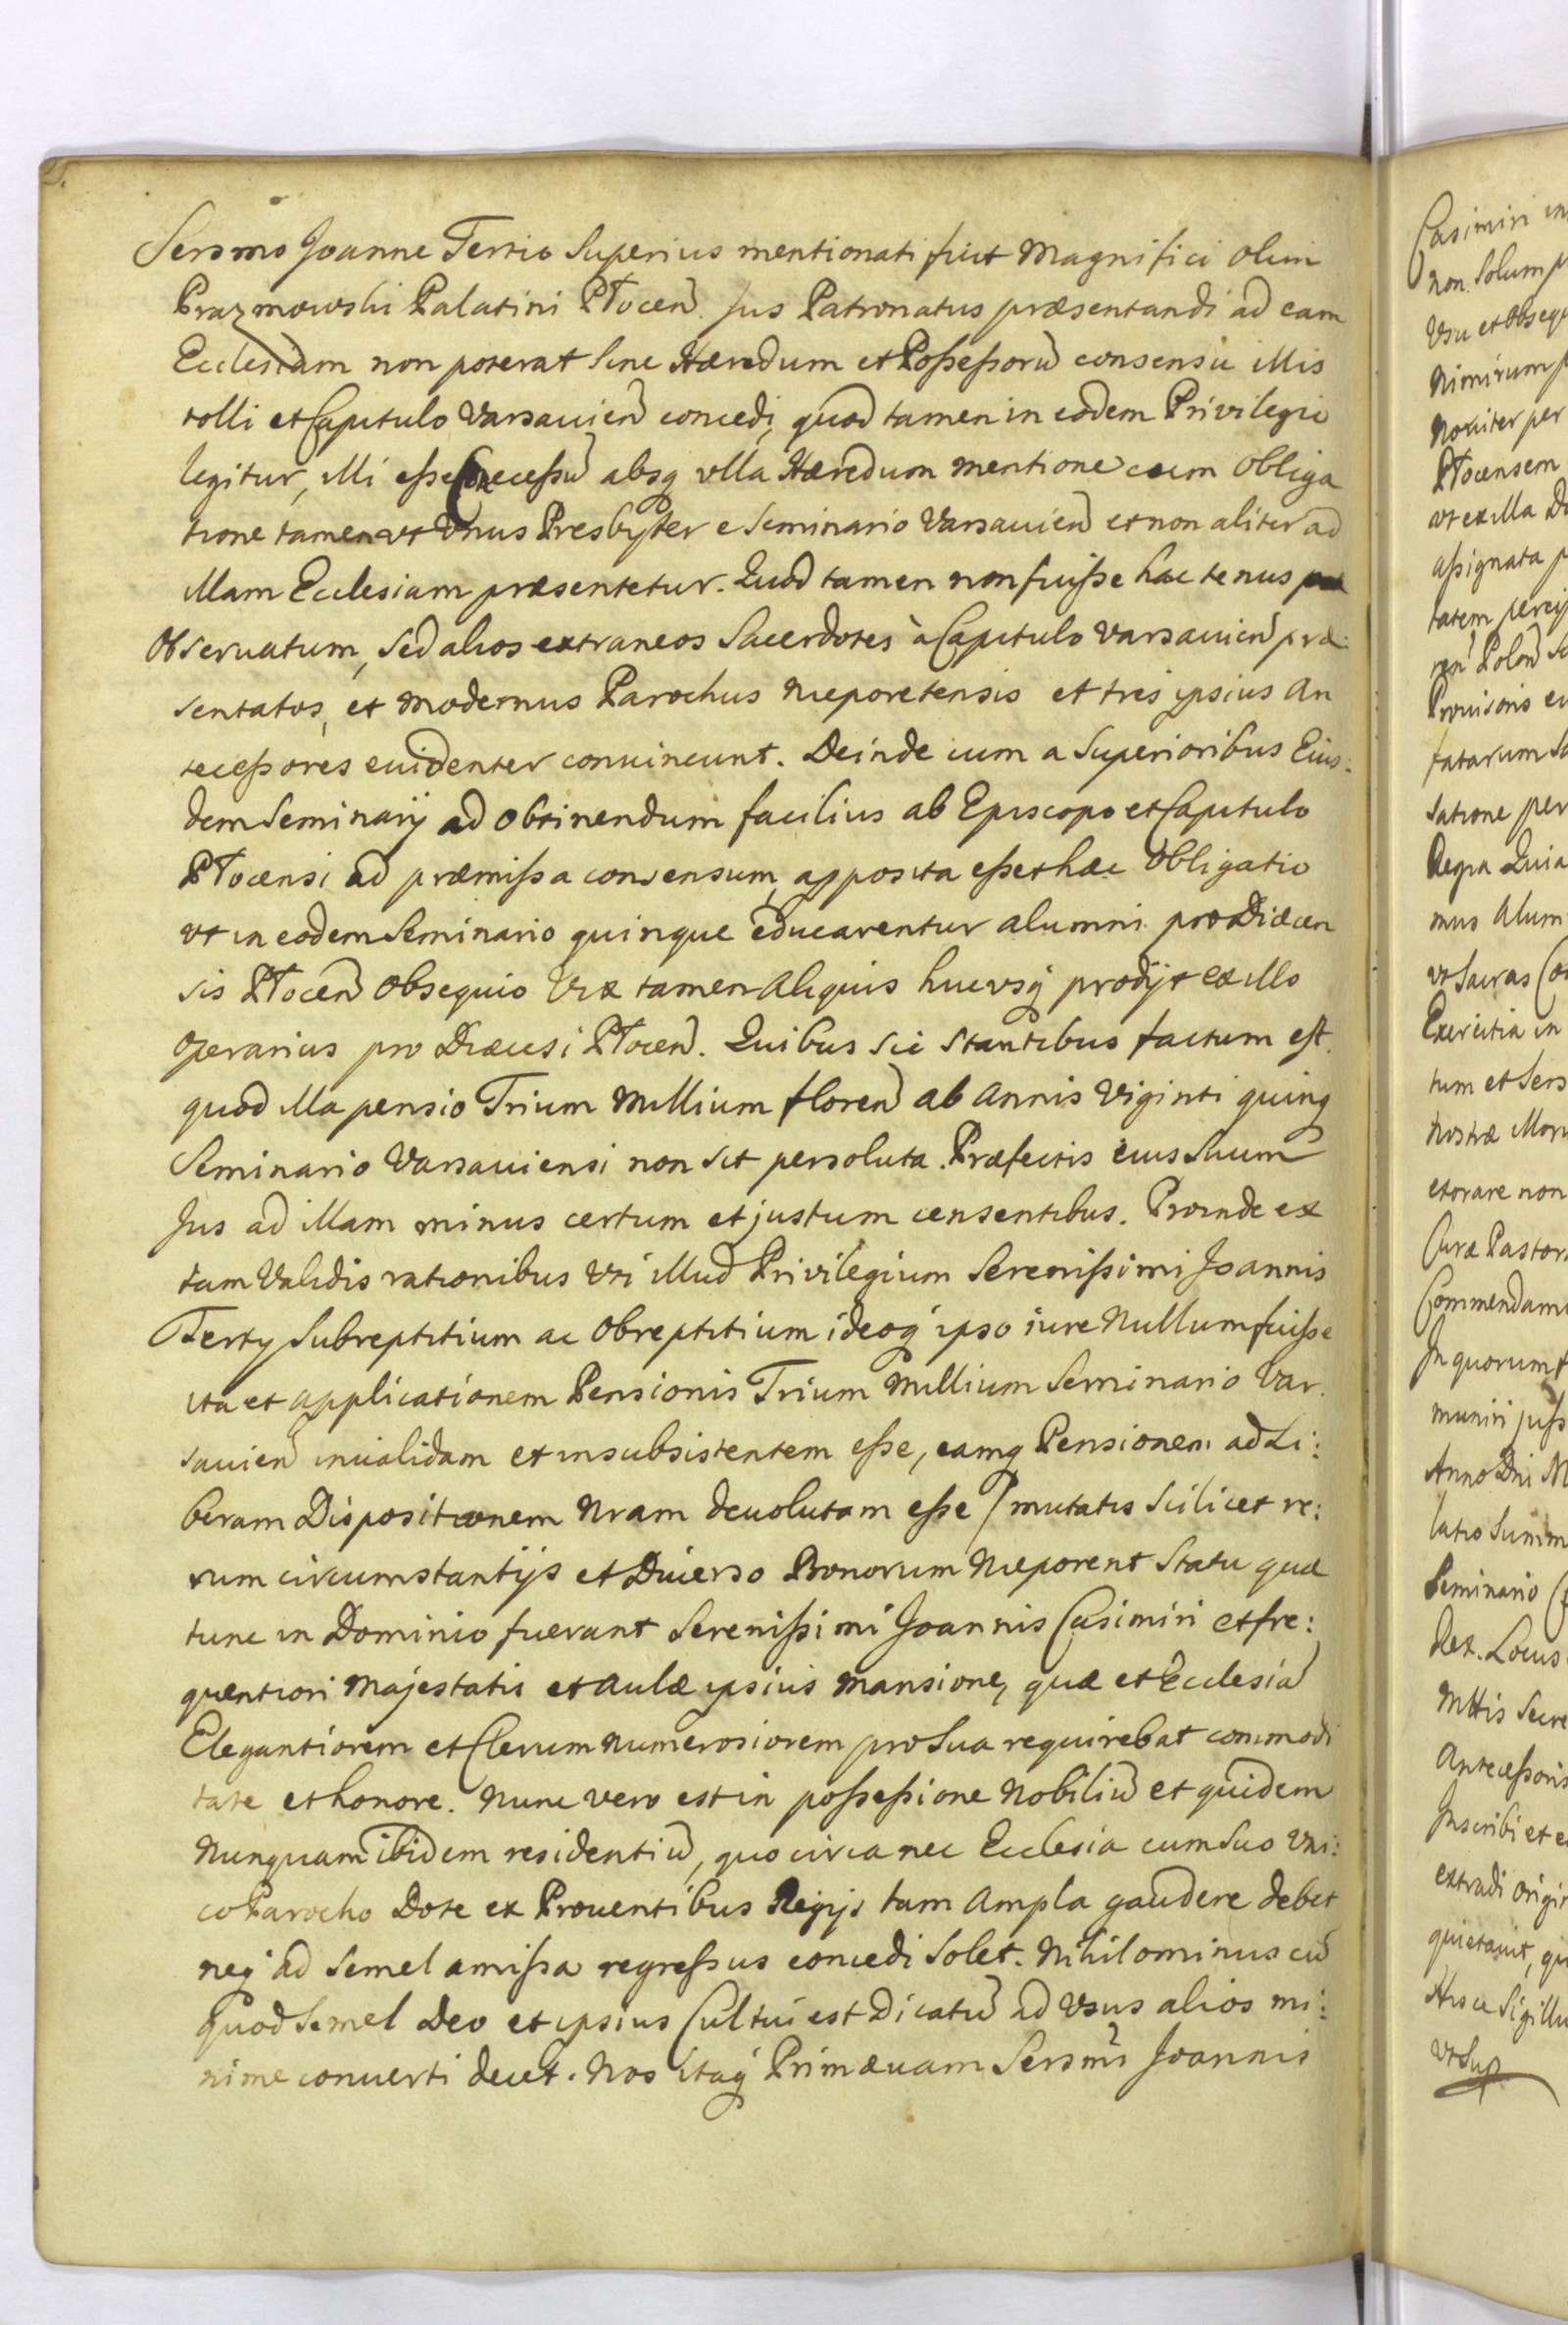 Sersmo Joanne Tertio Superius mentionati fuit Magnifici olim
Prazmowski Palatini Płocen. Jus Patronatus præsentandi ad eam
Ecclesiam non poterat sine Hæredum et Poßeßorū consensu illis
tolli et Capitulo Varsavien concedi, quod tamen in eodem Privilegio
legitur, illi eße Conceßū absq vlla Hæredum mentione cum obliga
tione tamen vt Vnus Presbyter e Seminario Varsauien et non aliter ad
illam Ecclesiam præsentetur. Quod tamen non fuiße hactenus
Observatum, sed alios extraneos Sacerdotes à Capitulo Varsauien præ:
sentatos, et modernus Parochus Nieporetensis et tres ipsius An
teceßores euidenter conuincunt. Deinde cum a Superioribus Eius:
dem Seminarij ad obtinendum facilius ab Episcopo et Capitulo
Płocensi ad præmißa consensum, apposita eßet hæc Obligatio
vt in eodem Seminario quinque educarentur alumni pro Diæcen
sis Płocen Obsequio Vix tamen aliquis hucvsq prodijt ex illo
Operarius pro Diæcesi Płocen. Quibus sic Stantibus factum est.
quod illa pensio Trium Millium floren ab annis Viginti quinq
Seminario Varsauiensi non sit persoluta. Præfectis eius Suum
Jus ad illam minus certum et justum censentibus. Proinde ex
tam Validis rationibus Vti illud Privilegium Serenißimi Joannis
Terty Subreptitium ac Obreptitium ideoq ipso iure Nullum fuiße
ita et applicationem Pensionis Trium Millium Seminario Var
sauien inualidam et insubsistentem eße, eamq Pensionem ad Li:
beram Dispositionem Nram deuolutam eße / mutatis Scilicet re:
rum circumstantijs et Diuerso Bonorum Nieporent Statu quæ
tunc in Dominio fuerant Serenißimi Joannis Casimiri et fre:
quentiori Majestatis et aulæ ipsius mansione, quæ et Ecclesiā
Elegantiorem et Clerum numerosiorem pro Sua requirebat commodi
tate et honore. Nunc vero est in poßeßione Nobiliū et quidem
Nunquam ibidem residentiū, quo circa nec Ecclesia cum Suo Vni:
co Parocho Dote ex Prouentibus Regijs tam Ampla gaudere debet
neq ad Semel amißa regreßus concedi Solet. Nihilominus cū
quod Semel Deo et ipsius Cultui est Dicatū ad Vsus alios mi:
nime conuerti decet. Nos itaq Primævam Sersmi Joannis
Casimiri
non Solum
Vsu et Obseq
Nimirum
Noviter per
Płocensem
vt ex illa
aßignata
tatem
Polon
Prouisoris
tatarum
satione per
Regia Quia
mus Alum
vt Sacras
Exercitia in
tum et Sers
Nostræ
et orare non
Curæ Pastor
Commendam
In quorum
muniri juß
Anno Dni
latio Summ
Seminario
Rex. Locus
Mttis Secre
Anteceßoris
Inscribi et
extradi origi
quietauit,
Hisce Sigillu
vt Sup